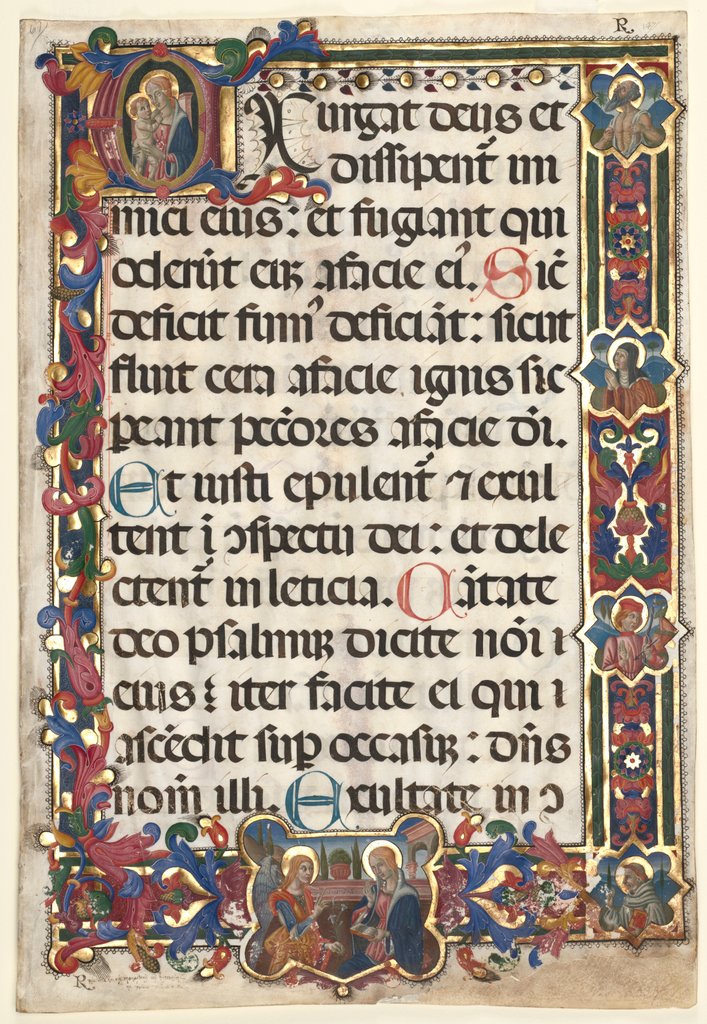 R
EXurgat deus et
dissipent̃ ini
mici eius: et fugiant qui
oderũt eũ afacie eiꝰ. Sic̃
deficit fumꝰ deficiãt: sicut
fluit cera afacie ignis sic
peant pec̃ores afacie dei.
Et iusti epulent̃ ⁊ exul
tent ĩ ↄspectu dei: et dele
ctent̃ in leticia. Cãtate
deo psalmũ dicite noĩ i
eius: iter facite ei qui i
ascẽdit sup occasũ: dñs
nom̃ illi. Exultate in ↄ
R